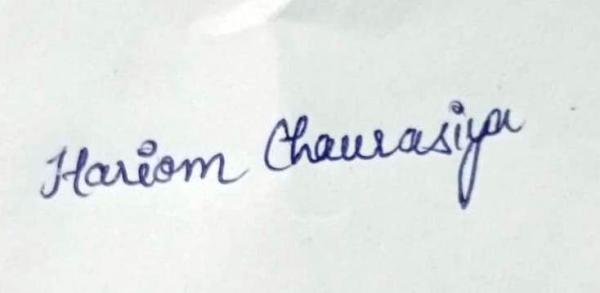 Hariom Chaurasiya